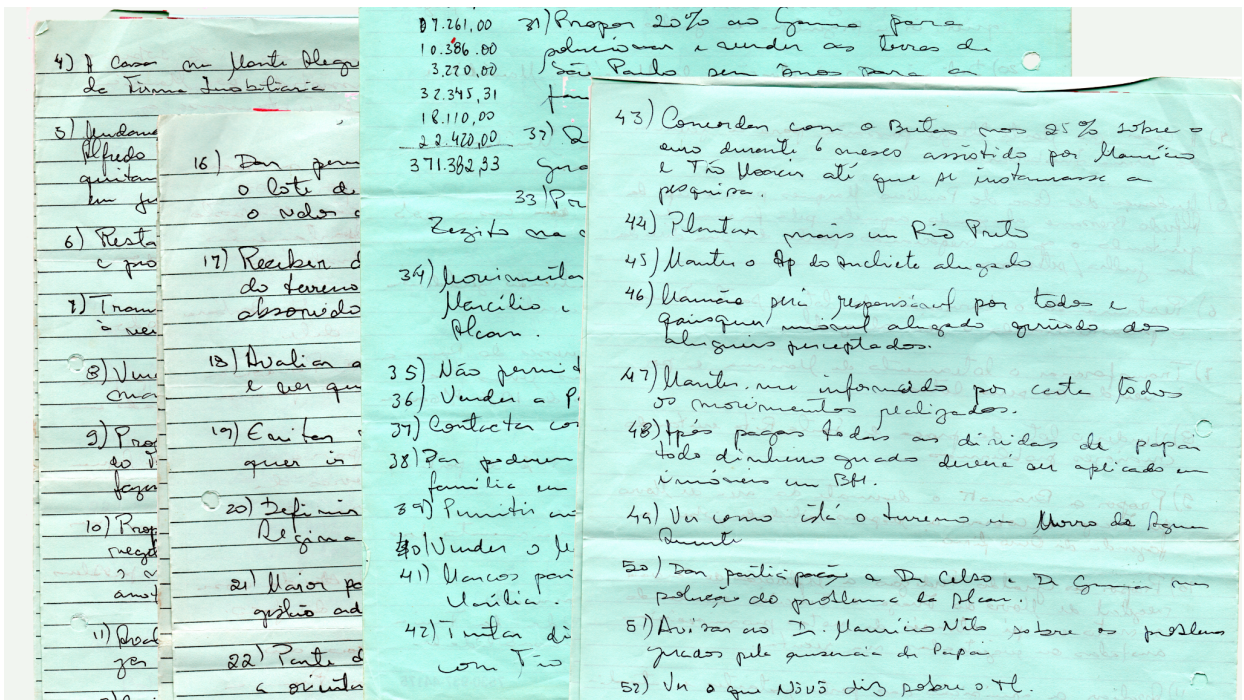 4) A casa na Monte Alegr
da Firma Imobiliaria
5)
Alfredo
quitan
em ju
6) Resta
e pro
7) Trans
à ver
8) Ven
mar
9) Prop
do
fazer
10) Prop
nego
o v
anot
11) Aval
zer
16) Dar perm
o lote de
o valor
17) Receber d
do terreno
absorvido
18) Avaliar a
e ver qu
19) Evitar
quer ir
20) Definir
Regina
21) Maior pa
gestão ad
22) Parte d
a orienta
17.261,00
10.386.00
3.220,00
32.345,31
18.110,00
22.420,00
371.382,33
31) Propor 20% ao Gama para
solucionar e vender as terras de
São Paulo sem ônus para a
fam
32) Q
gra
33) Pr
Zezito na
34) Movimentar
Marcílio e
Alcan.
35) Não permit
36) Vender a P
37) Contactar co
38) Dar poderem
família em
39) Permitir
40) Vender o
41) Marcos par
Marília.
42) Tentar di
com Tio
43) Concordar com o Britas nos 25% sobre o
ouro durante 6 meses assistido por Maurício
e Tio Moacir até que se instaurasse a
pesquisa.
44) Plantar mais em Rio Preto
45) Manter o Ap do Anchieta alugado
46) Mamãe será responsável por todos e
quaisquer imóvel alugado gerindo dos
alugueis perceptados.
47) Manter-me informado por carta todos
os movimentos realizados.
48) Após pagar todas as dívidas de papai
todo dinheiro gerado deverá ser aplicado em
imóveis em BH.
49) Ver como está o terreno em Morro da Agua
Quente
50) Dar participação a Dr Celso e Dr na
solução do problema da Alcan.
51) Avisar ao Dr. Maurício Nilo sobre os problemas
gerados pela ausencia de Papai
52) Ver o que Nívô diz sobre o